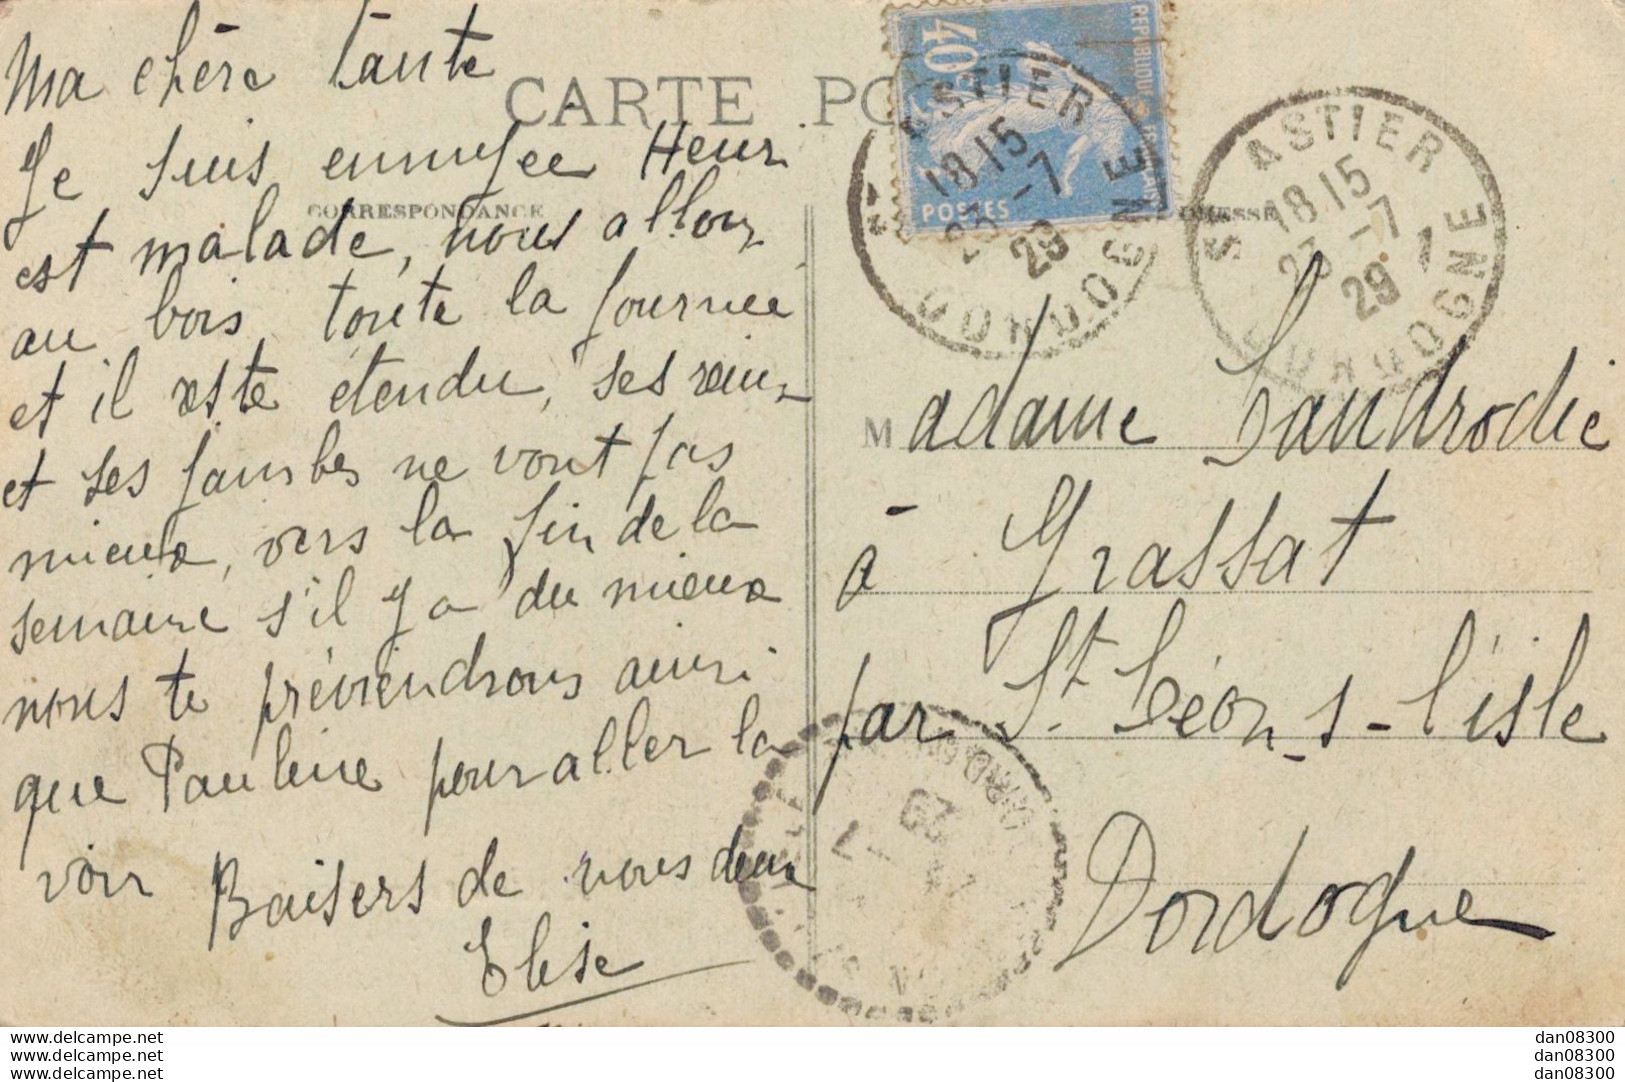 Ma chère tante
CARTE PO
Je suis ennuyée Henri
CORRESPONDANCE
est malade, nous allons
au bois toute la journée
et il reste étendu, ses reins
et ses jambes ne vont pas
mieux, vers la fin de la
semaine s'il y a du mieux
nous te préviendrons ainsi
que Pauline pour aller la
voir Baisers de nous deux
Elise
REPUBLIQUE
40c
POSTES
ST ASTIER
18.15
23-7
29
DORDOGNE
ST ASTIER
18.15
23-7
29
DORDOGNE
Madame Landrodie
à Grassat
par St Léon-s-l'isle
Dordogne
29
7
www.delcampe.net
www.delcampe.net
www.delcampe.net
dan08300
dan08300
dan08300